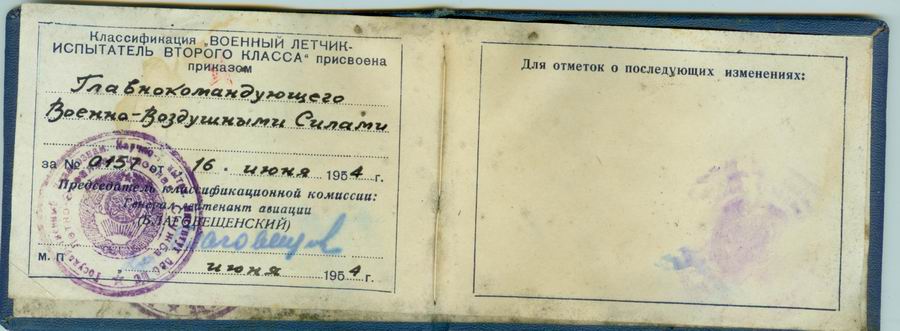 Классификация „ВОЕННЫЙ ЛЕТЧИК-
ИСПЫТАТЕЛЬ ВТОРОГО КЛАССА“ присвоена
приказом
Главнокомандующего
Военно-Воздушными Силами
за № 0157 от 16. июня 1954 г.
Председатель классификационной комиссии:
Генерал-лейтенант авиации
(БЛАГОВЕЩЕНСКИЙ)
М. П. „ июня 1954 г.
Для отметок о последующих изменениях: